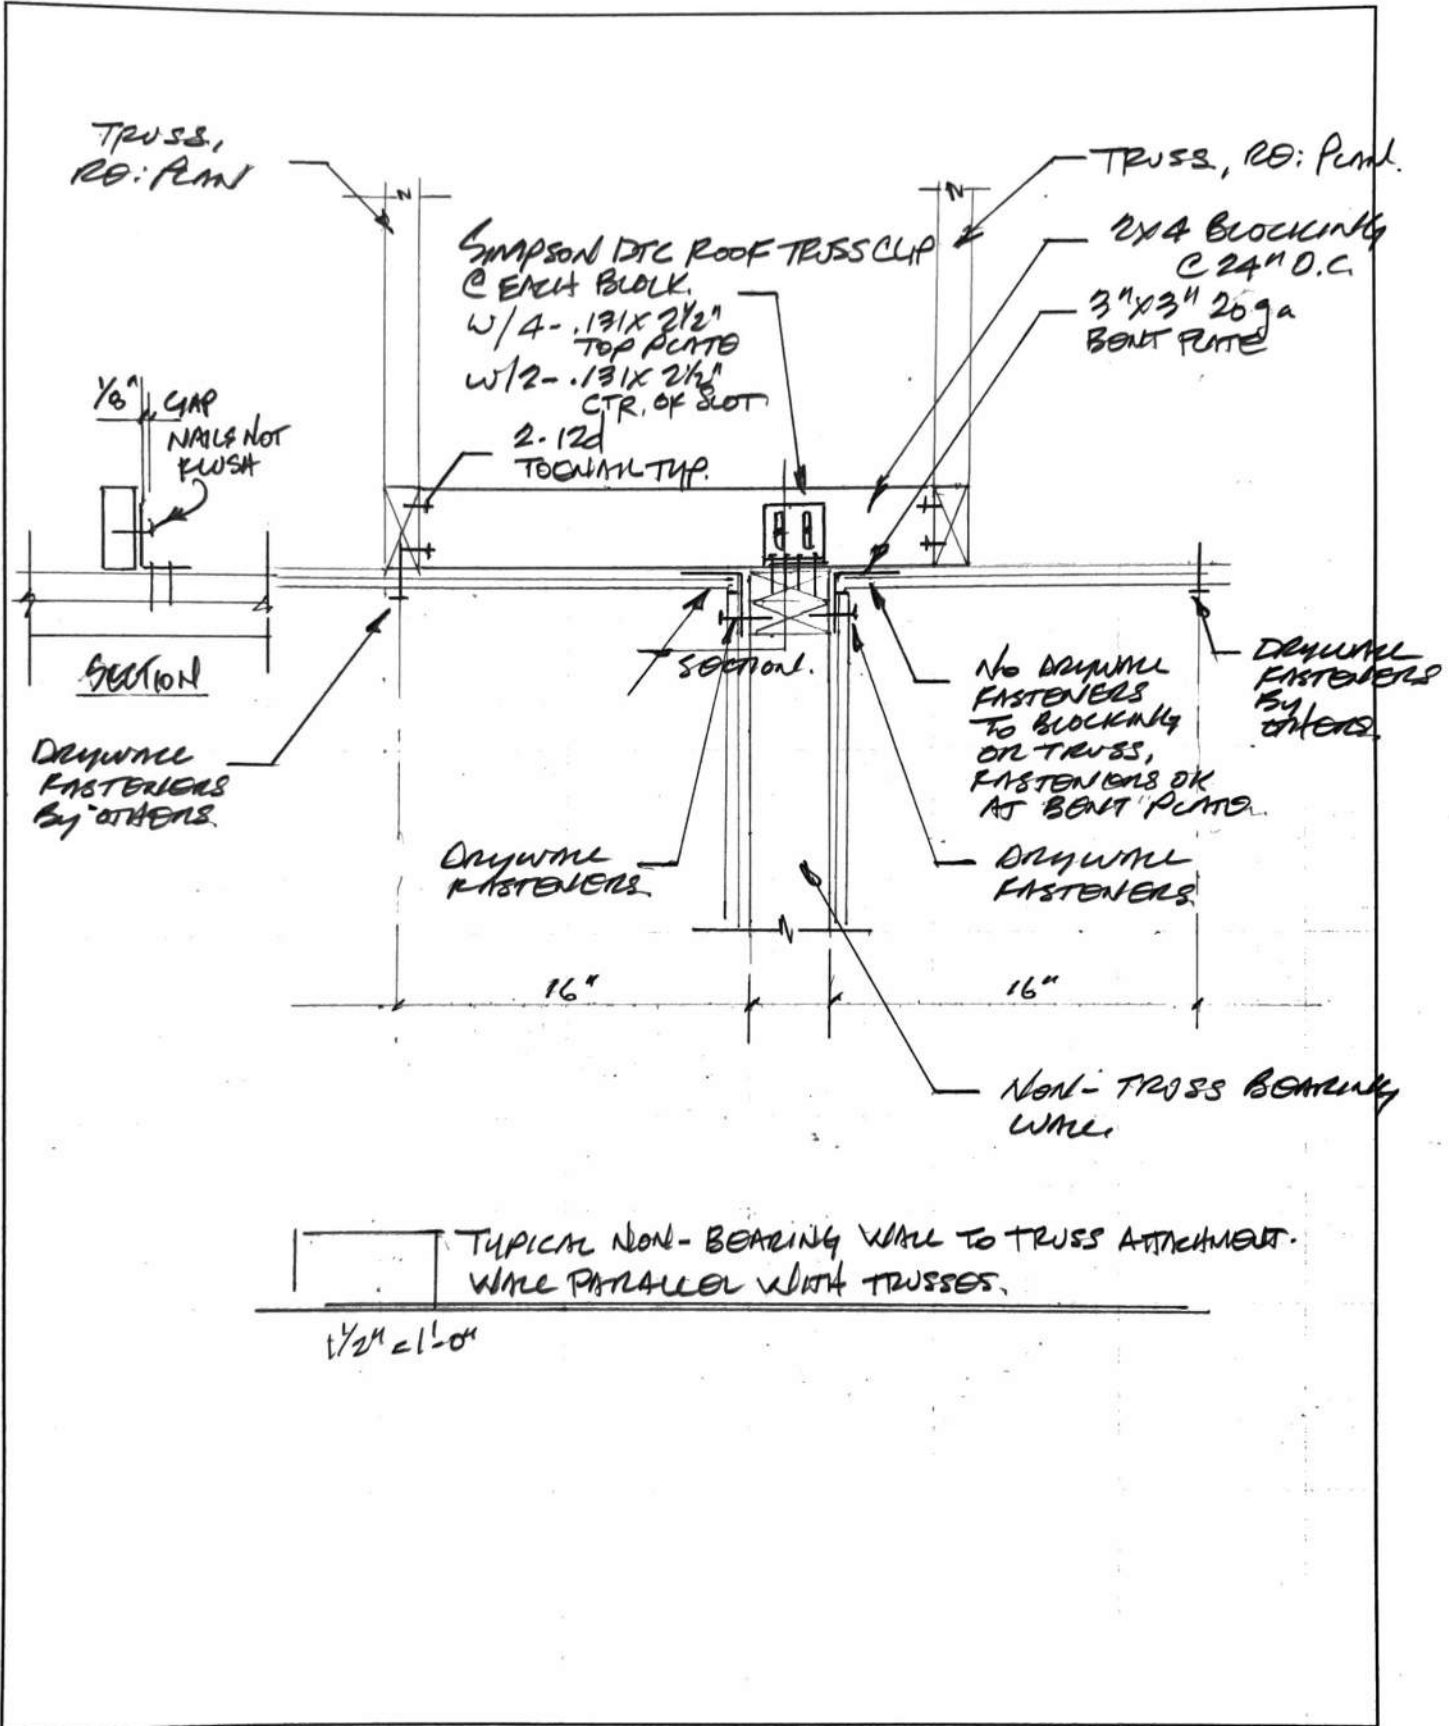 TRUSS,
RE: PLAN
TRUSS, RE: PLAN.
SIMPSON DTC ROOF TRUSS CLIP
@ EACH BLOCK.
W/4-.131X 2½"
TOP PLATE
W/2-.131X 2½"
CTR. OF SLOT
2X4 BLOCKING
@ 24" O.C.
3"X3" 20ga
BENT PLATE
1/8" GAP
NAILS NOT
FLUSH
2-12d
TOENAIL TYP.
SECTION
SECTION.
DRYWALL
FASTENERS
By OTHERS.
NO DRYWALL
FASTENERS
TO BLOCKING
OR TRUSS,
FASTENERS OK
AT BENT PLATE.
DRYWALL
FASTENERS
By
OTHERS.
DRYWALL
FASTENERS
DRYWALL
FASTENERS
16"
16"
NON-TRUSS BEARING
WALL.
TYPICAL NON-BEARING WALL TO TRUSS ATTACHMENT.
WALL PARALLEL WITH TRUSSES.
1½" = 1'-0"